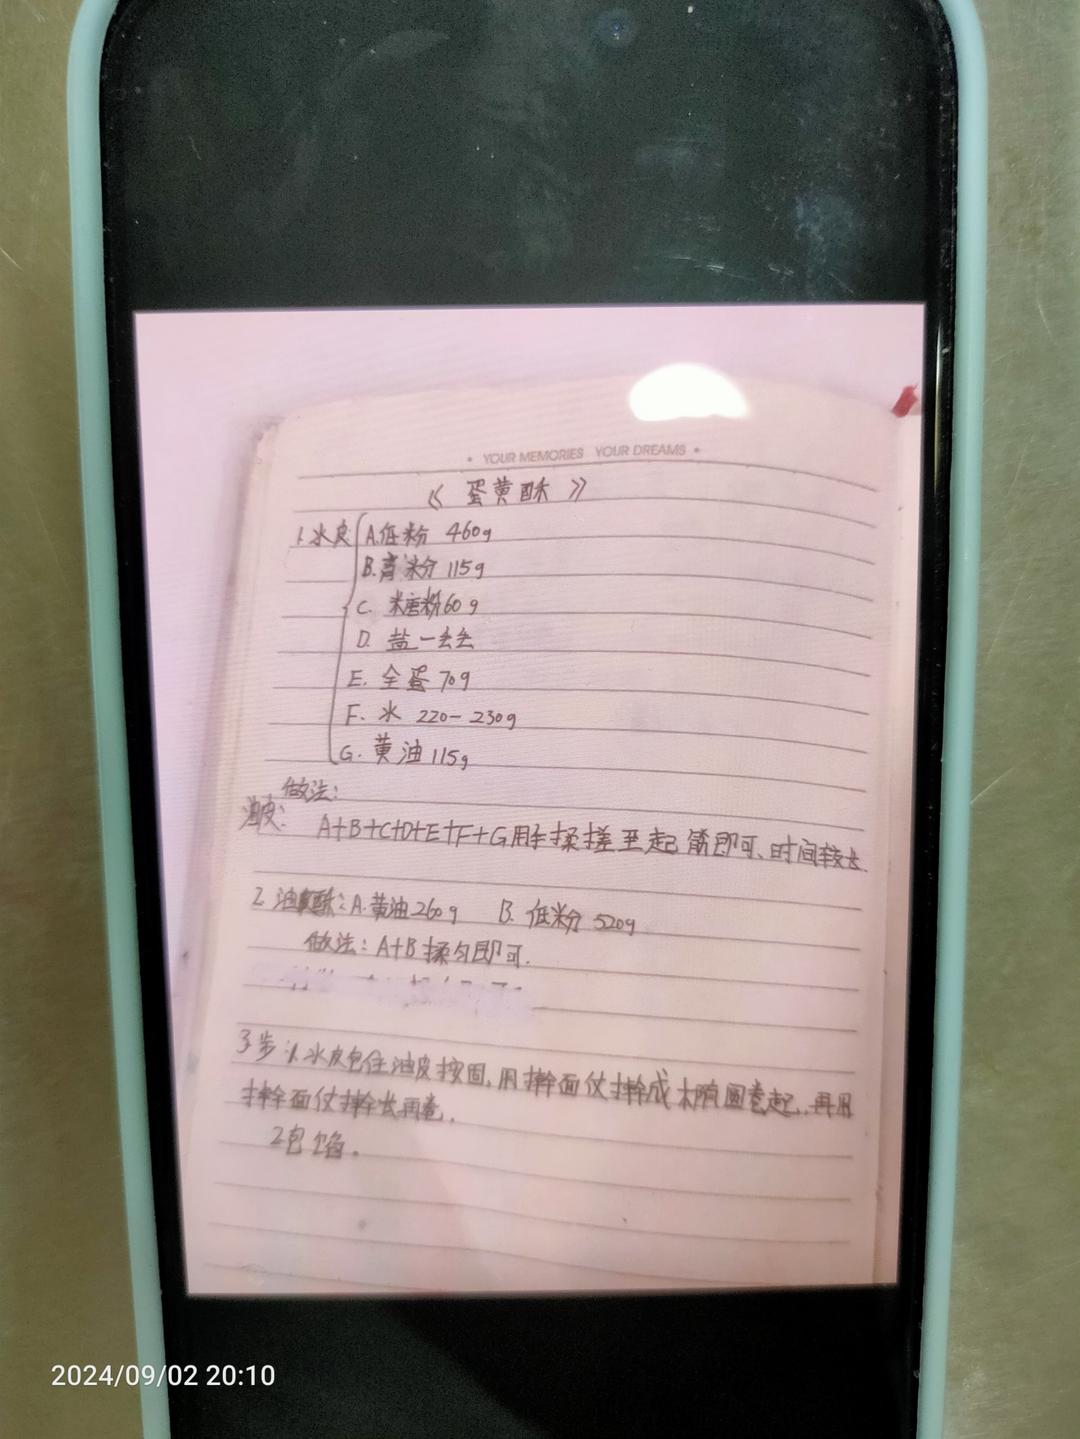 • YOUR MEMORIES YOUR DREAMS •
《 蛋黄酥 》
1.水皮 A.低粉 460g
B.高粉 115g
C. 糖粉60g
D. 盐一丢丢
E. 全蛋 70g
F. 水 220-230g
G. 黄油 115g
做法:
油皮: A+B+C+D+E+F+G用手揉搓至起筋即可、时间较长.
2. 油酥: A.黄油260g B. 低粉 520g
做法: A+B揉匀即可.
3.步: 1.水皮包住油皮按固,用擀面仗擀成 圆卷起,再用
擀面仗擀长再卷.
2包馅.
2024/09/02 20:10